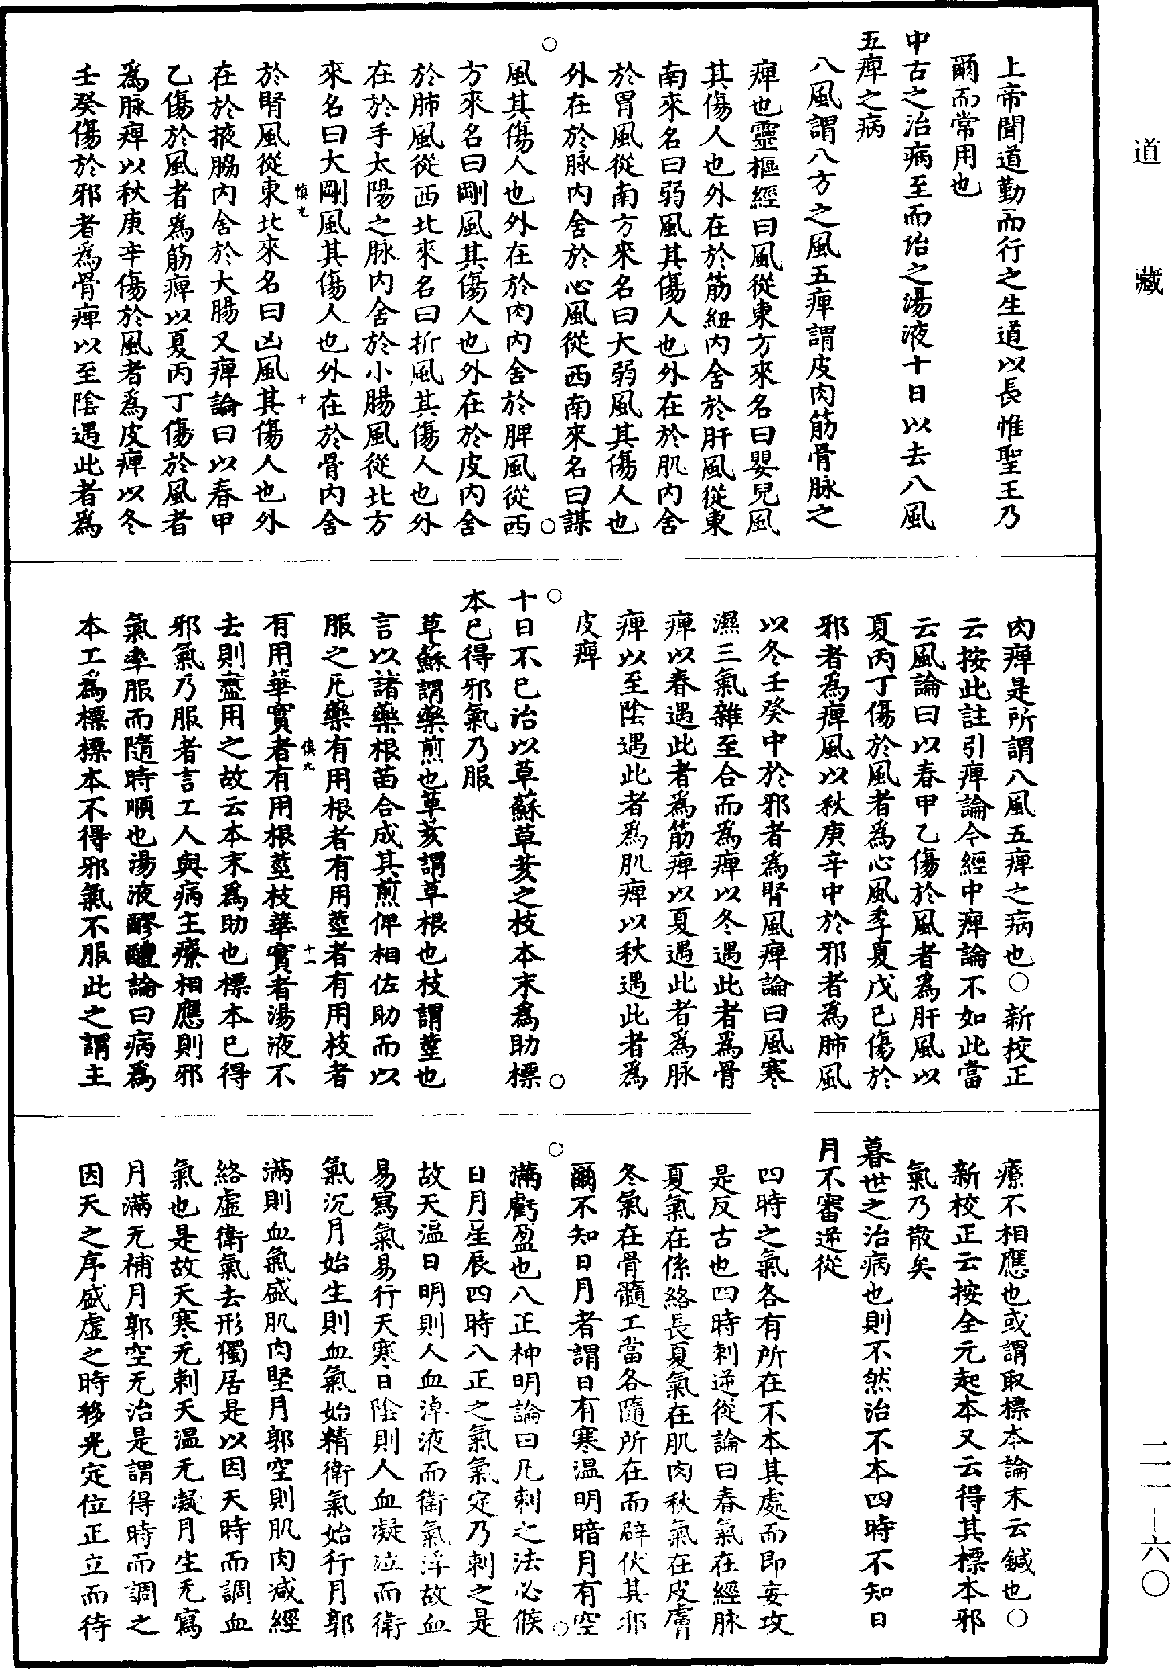 道藏
上帝聞道勤而行之生道以長惟聖王乃
爾而常用也
中古之治病至而治之湯液十日以去八風
五痺之病
八風謂八方之風五痺謂皮肉筋骨脉之
痺也靈樞經曰風從東方來名曰嬰兒風
其傷人也外在於筋紐內舍於肝風從東
南來名曰弱風其傷人也外在於肌內舍
於胃風從南方來名曰大弱風其傷人也
外在於脉內舍於心風從西南來名曰謀
風其傷人也外在於肉內舍於脾風從西
方來名曰剛風其傷人也外在於皮內舍
於肺風從西北來名曰折風其傷人也外
在於手太陽之脉內舍於小腸風從北方
來名曰大剛風其傷人也外在於骨內舍
慎九 十
於腎風從東北來名曰凶風其傷人也外
在於掖脇內舍於大腸又痺論曰以春甲
乙傷於風者為筋痺以夏丙丁傷於風者
為脉痺以秋庚辛傷於風者為皮痺以冬
壬癸傷於邪者為骨痺以至陰遇此者為
肉痺是所謂八風五痺之病也○新校正
云按此註引痺論今經中痺論不如此當
云風論曰以春甲乙傷於風者為肝風以
夏丙丁傷於風者為心風季夏戊己傷於
邪者為痺風以秋庚辛中於邪者為肺風
以冬壬癸中於邪者為腎風痺論曰風寒
濕三氣雜至合而為痺以冬遇此者為骨
痺以春遇此者為筋痺以夏遇此者為脉
痺以至陰遇此者為肌痺以秋遇此者為
皮痺
十日不已治以草蘇草荄之枝本末為助標
本已得邪氣乃服
草蘇謂藥煎也草荄謂草根也枝謂莖也
言以諸藥根苗合成其煎俾相佐助而以
服之凡藥有用根者有用莖者有用枝者
慎九 十一
有用華實者有用根莖枝華實者湯液不
去則盡用之故云本末為助也標本已得
邪氣乃服者言工人與病主療相應則邪
氣率服而隨時順也湯液醪醴論曰病為
本工為標標本不得邪氣不服此之謂主
療不相應也或謂取標本論末云鍼也○
新校正云按全元起本又云得其標本邪
氣乃散矣
暮世之治病也則不然治不本四時不知日
月不審逆從
四時之氣各有所在不本其處而即妄攻
是反古也四時刺逆從論曰春氣在經脉
夏氣在係絡長夏氣在肌肉秋氣在皮膚
冬氣在骨髓工當各隨所在而辟伏其邪
爾不知日月者謂日有寒溫明暗月有空
滿虧盈也八正神明論曰凡刺之法必候
日月星辰四時八正之氣氣定乃刺之是
故天溫日明則人血淖液而衛氣浮故血
易寫氣易行天寒日陰則人血凝泣而衛
氣沉月始生則血氣始精衛氣始行月郭
滿則血氣盛肌肉堅月郭空則肌肉減經
絡虛衛氣去形獨居是以因天時而調血
氣也是故天寒无刺天溫无凝月生无寫
月滿无補月郭空无治是謂得時而調之
因天之序盛虛之時移光定位正立而待
二一－六〇